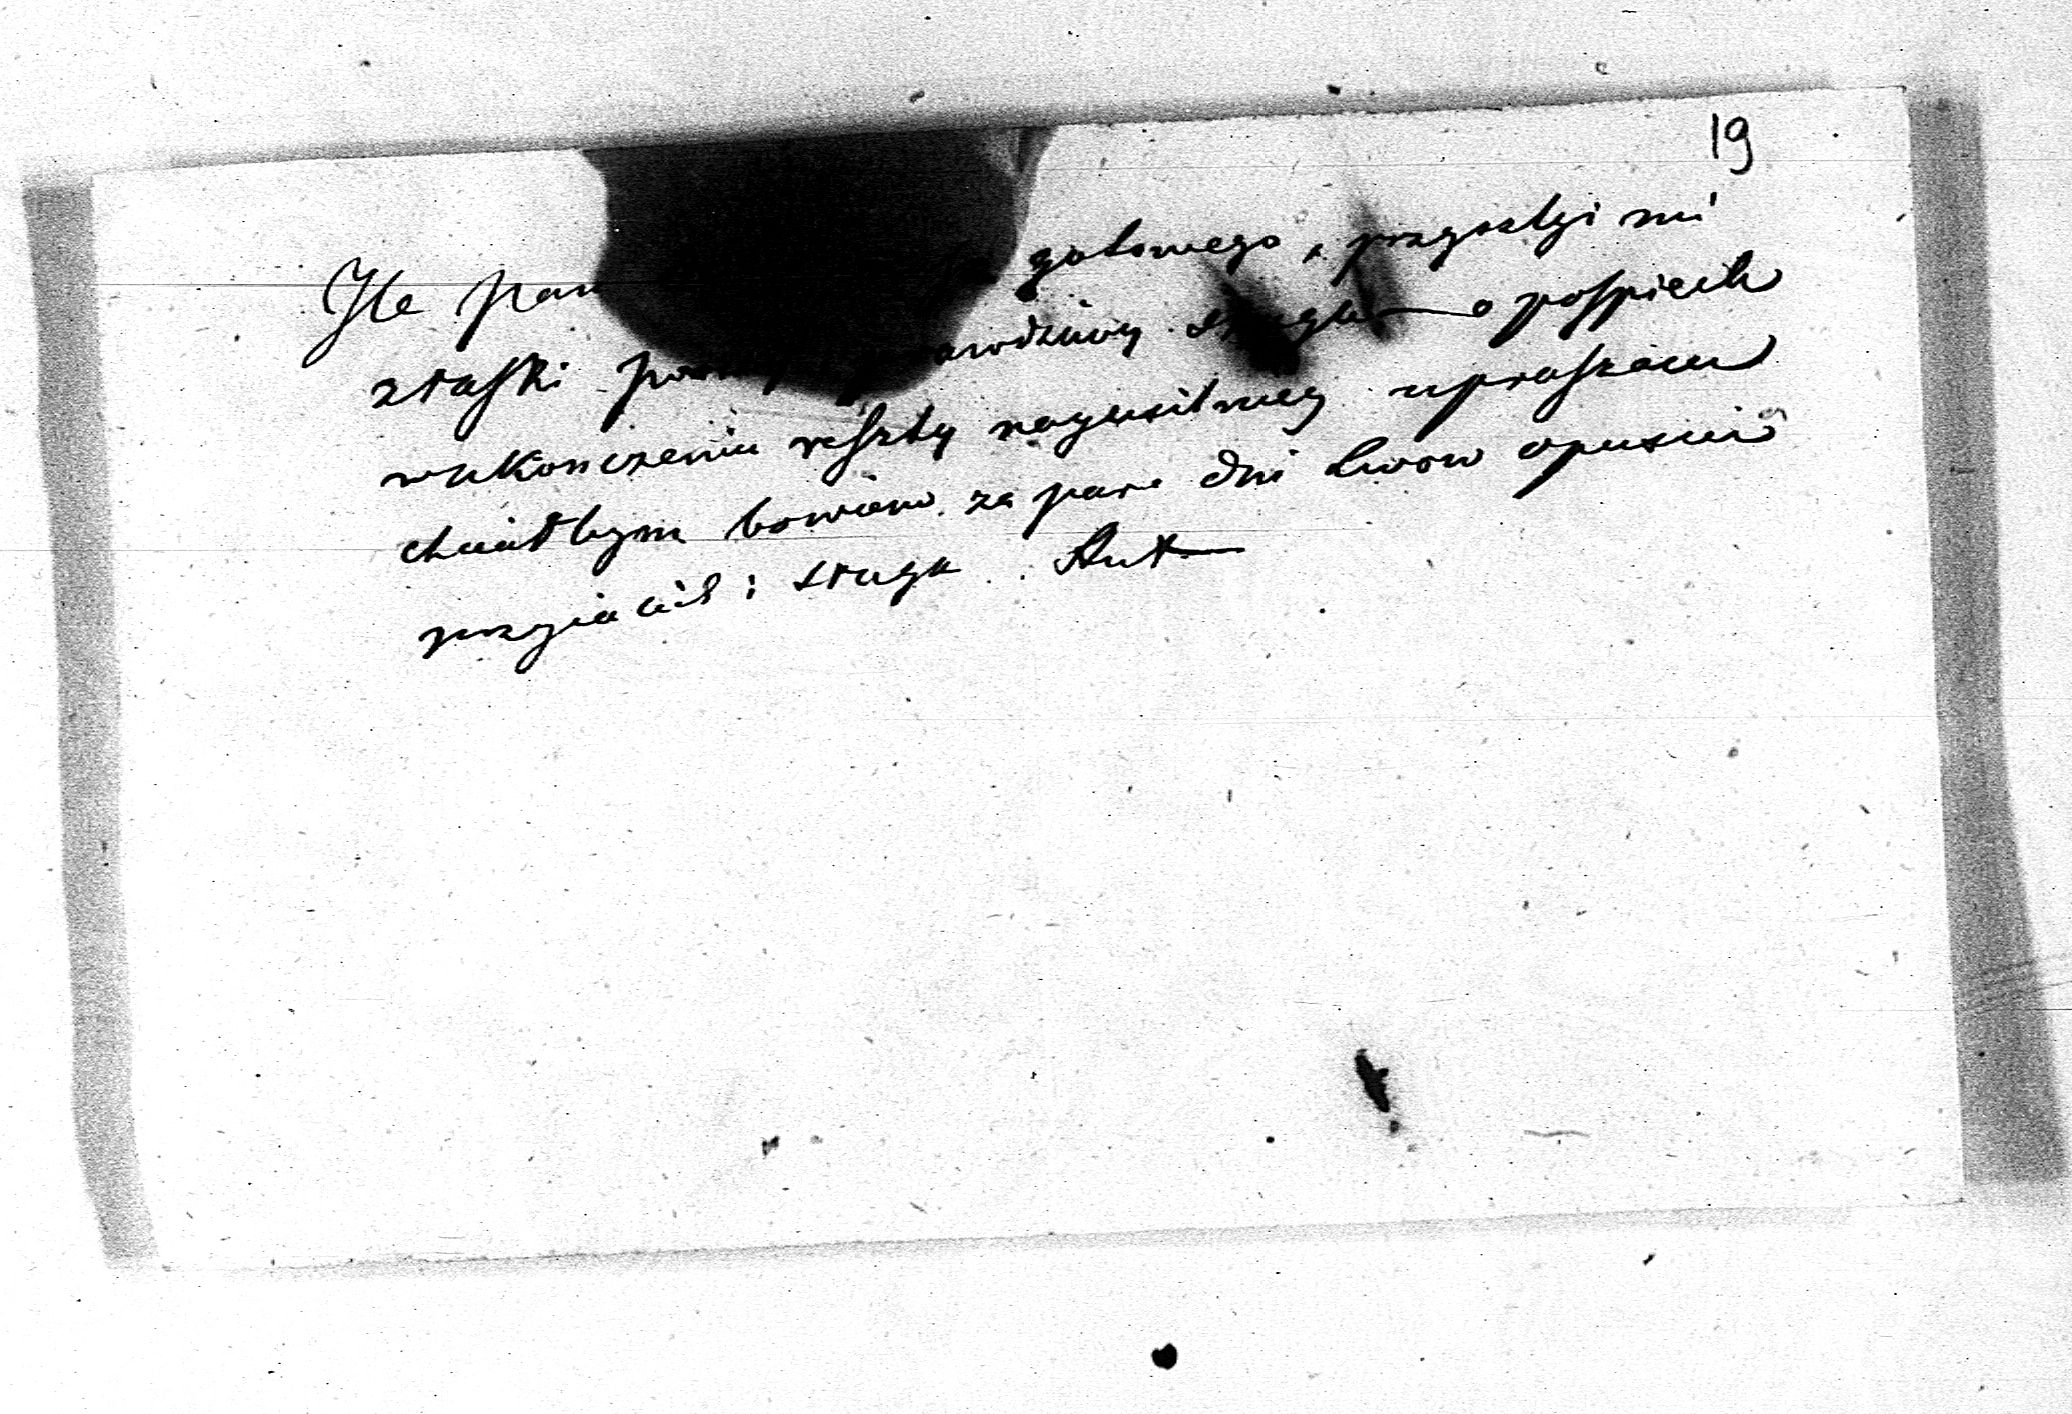 19
Ile pan gotowego, przyszlyi mi
z łaſki prawdziwy sługa o poſpiech
w ukonczeniu reſzty nayusilniey upraſzam
chciałbym bowiem za pare dni Lwow opuscic
przyiaciel i sługa Ant